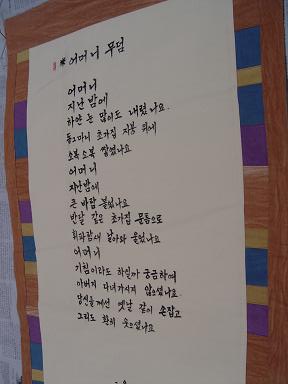 어머니 무덤
어머니
지난 밤에
하얀 눈 많이도 내렸나요.
동그마니 초가집 지붕 위에
소복소복 쌓였나요
어머니
지난밤에
큰 바람 불었나요
반달 같은 초가집 문틈으로
휘파람새 날아와 울었나요
어머니
기침이라도 하실까 궁금하여
아버지 다녀가시지 않으셨나요.
당신들께선 옛날 같이 손잡고
그리도 환히 웃으셨나요